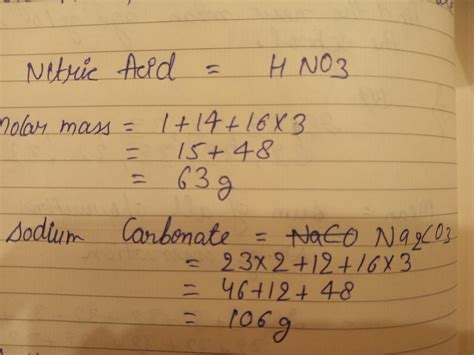 Nitric Acid = HNO3
Molar mass = 1+14+16×3
= 15+48
= 63g
Sodium Carbonate = ~~NaCO~~ Na2CO3
= 23×2+12+16×3
= 46+12+48
= 106g